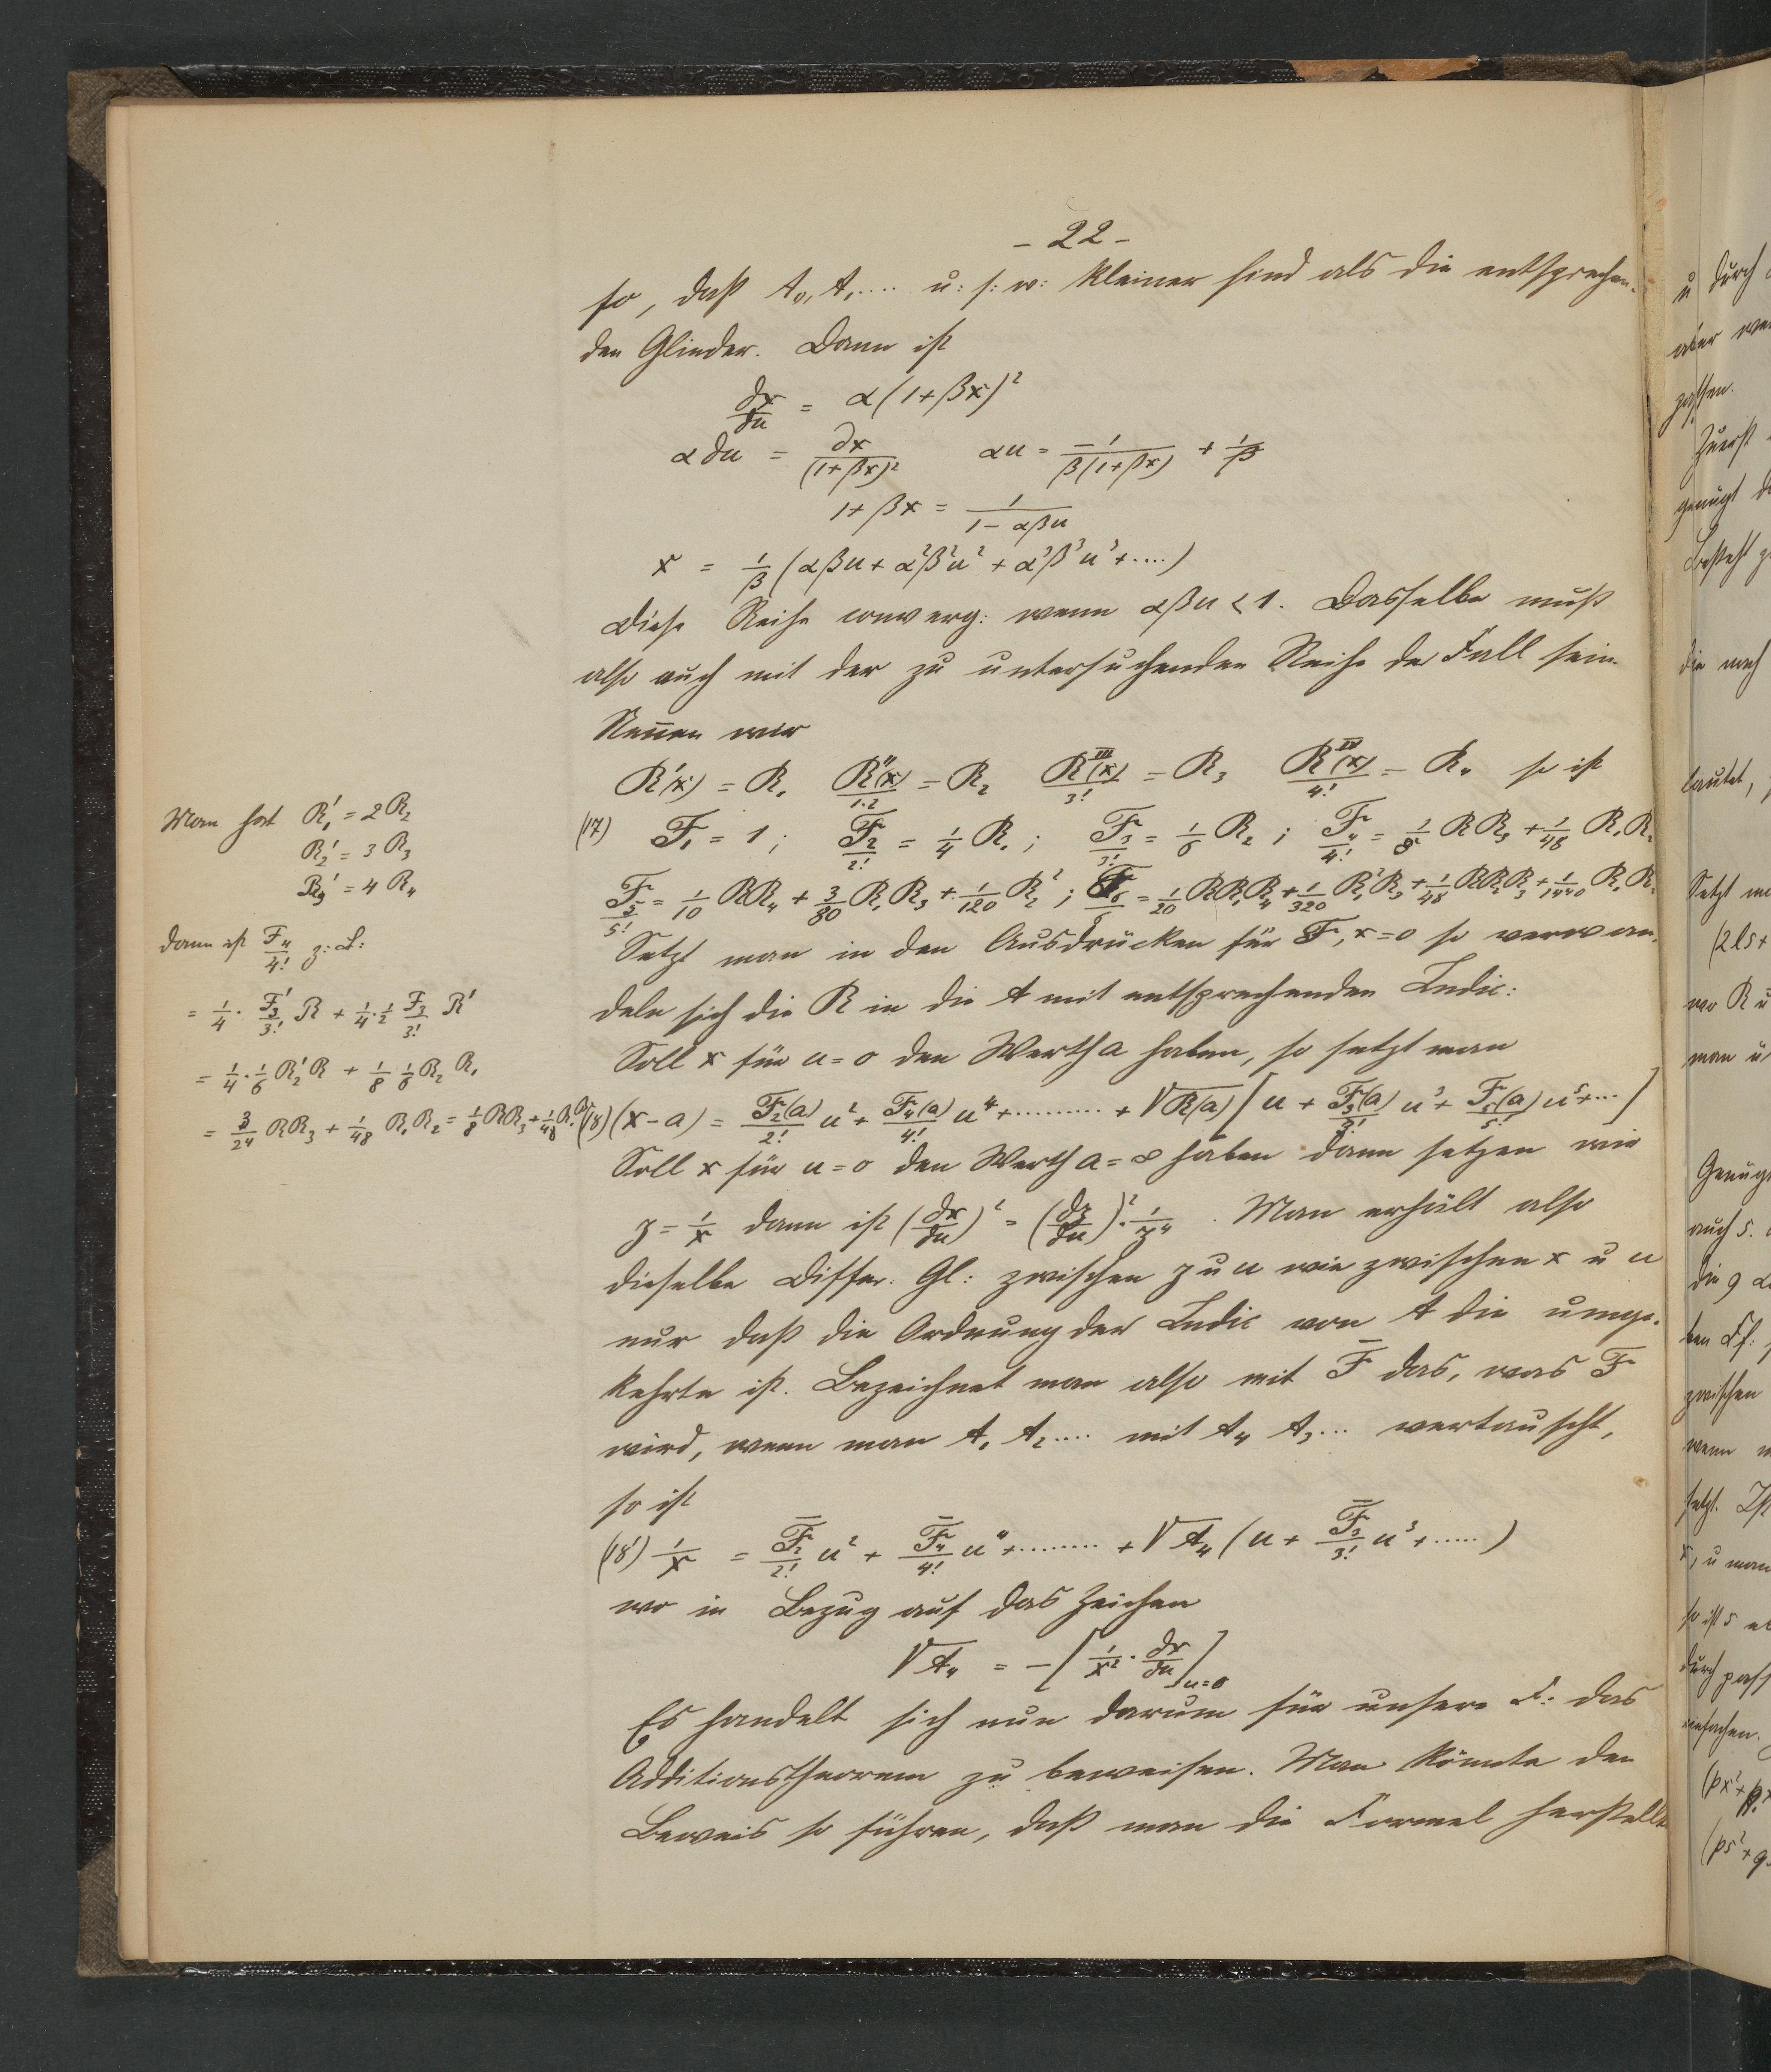 - 22 -
so, daß A₀, A₁.... u: s: w: kleiner sind als die entsprechen-
den Glieder. Dann ist
∂x/∂u = α(1+βx)²
α∂u = ∂x/(1+βx)²   αu = -1/β(1+βx) + 1/β
1+βx = 1/(1-αβu)
x = 1/β (αβu + α²β²u² + α³β³u³+....)
Diese Reihe converg: wenn αβu<1. Dasselbe muß
also auch mit der zu untersuchenden Reihe der Fall sein.
Nennen wir
R'(x) = R₁   R''(x)/1.2 = R₂   R^III(x)/3! = R₃   R^IV(x)/4! = R₄ so ist
(17) F₁ = 1; F₂/2! = 1/4 R₁; F₃/3! = 1/6 R₂; F₄/4! = 1/8 RR₃ + 1/48 R₁R₂
F₅/5! = 1/10 RR₄ + 3/80 R₁R₃ + 1/120 R₂²; F₆/6 = 1/20 RR₁R₄ + 1/320 R₁²R₃ + 1/48 RR₂R₃ + 1/1440 R₁R₂
Setzt man in den Ausdrücken für F, x=0 so verwan-
deln sich die R in die A mit entsprechenden Indic:
Soll x für u=0 den Werth a haben, so setzt man
(18) (x-a) = F₂(a)/2! u² + F₄(a)/4! u⁴ +.......... + √R(a) [u + F₃(a)/3! u³ + F₅(a)/5! u⁵+...]
Soll x für u=0 den Werth a=∞ haben dann setzen wir
z = 1/x dann ist (∂x/∂u)² = (∂z/∂u)² · 1/z⁴. Man erhält also
dieselbe Differ. Gl: zwischen z u u wie zwischen x u u
nur daß die Ordnung der Indic von A die umge-
kehrte ist. Bezeichnet man also mit F̄ das, was F
wird, wenn man A₁ A₂.... mit A₄ A₃... vertauscht,
so ist
(18') 1/x = F̄₂/2! u² + F̄₄/4! u⁴ +......... + √A₄ (u + F̄₃/3! u³ +.....)
wo in Bezug auf das Zeichen
√A₄ = -[1/x² · ∂x/∂u]u=0
Es handelt sich nun darum für unsere F: das
Additionstheorem zu beweisen. Man könnte den
Beweis so führen, daß man die Formel herstellt
Man hat R₁' = 2R₂
R₂' = 3R₃
R₃' = 4R₄
dann ist F₄/4! z: B:
= 1/4 · F₃'/3! R + 1/4 · 1/2 F₃/3! R'
= 1/4 · 1/6 R₂'R + 1/8 1/6 R₂ R₁
= 3/24 RR₃ + 1/48 R₁R₂ = 1/8 RR₃ + 1/48 R₁R₂
u durch
aber
Zuerst
genügt
besteht
die nach
lautet,
Setzt
(2ls+
wo R u
man
auch s.
die 9
zwischen
wenn
setzt. Ist
so ist s
durch
einfachen.
(px²+
(ps²+q